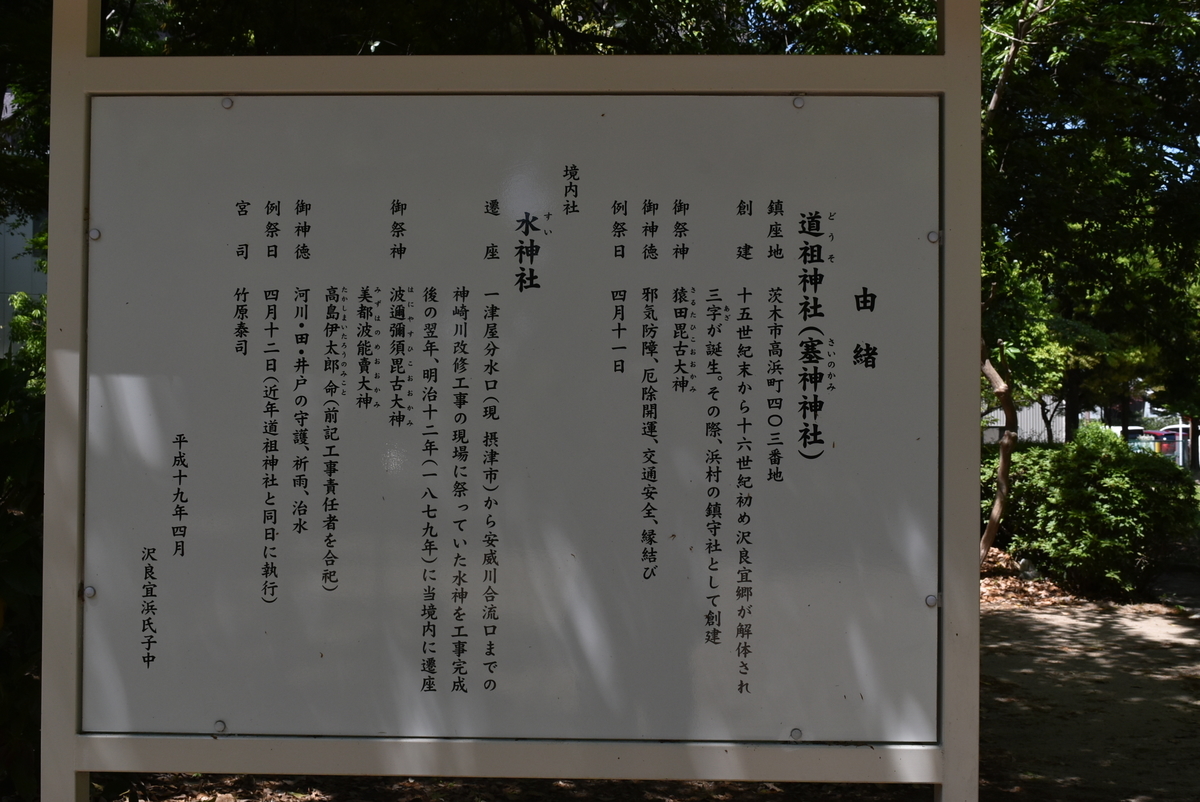 由緒
道祖神社(塞神神社)
どうそ さいのかみ
鎮座地 茨木市高浜町四〇三番地
創建 十五世紀末から十六世紀初め沢良宜郷が解体され
三字が誕生。その際、浜村の鎮守社として創建
あざ
御祭神 猿田毘古大神
さるたひこおおかみ
御神徳 邪気防障、厄除開運、交通安全、縁結び
例祭日 四月十一日
境内社
水神社
すい
遷座 一津屋分水口(現 摂津市)から安威川合流口までの
神崎川改修工事の現場に祭っていた水神を工事完成
後の翌年、明治十二年(一八七九年)に当境内に遷座
御祭神 波邇彌須毘古大神
はにやすひこおおかみ
美都波能賣大神
みずはのめおおかみ
高島伊太郎 命(前記工事責任者を合祀)
たかしまいたろうのみこと
御神徳 河川・田・井戸の守護、祈雨、治水
例祭日 四月十二日(近年道祖神社と同日に執行)
宮司 竹原泰司
平成十九年四月
沢良宜浜氏子中